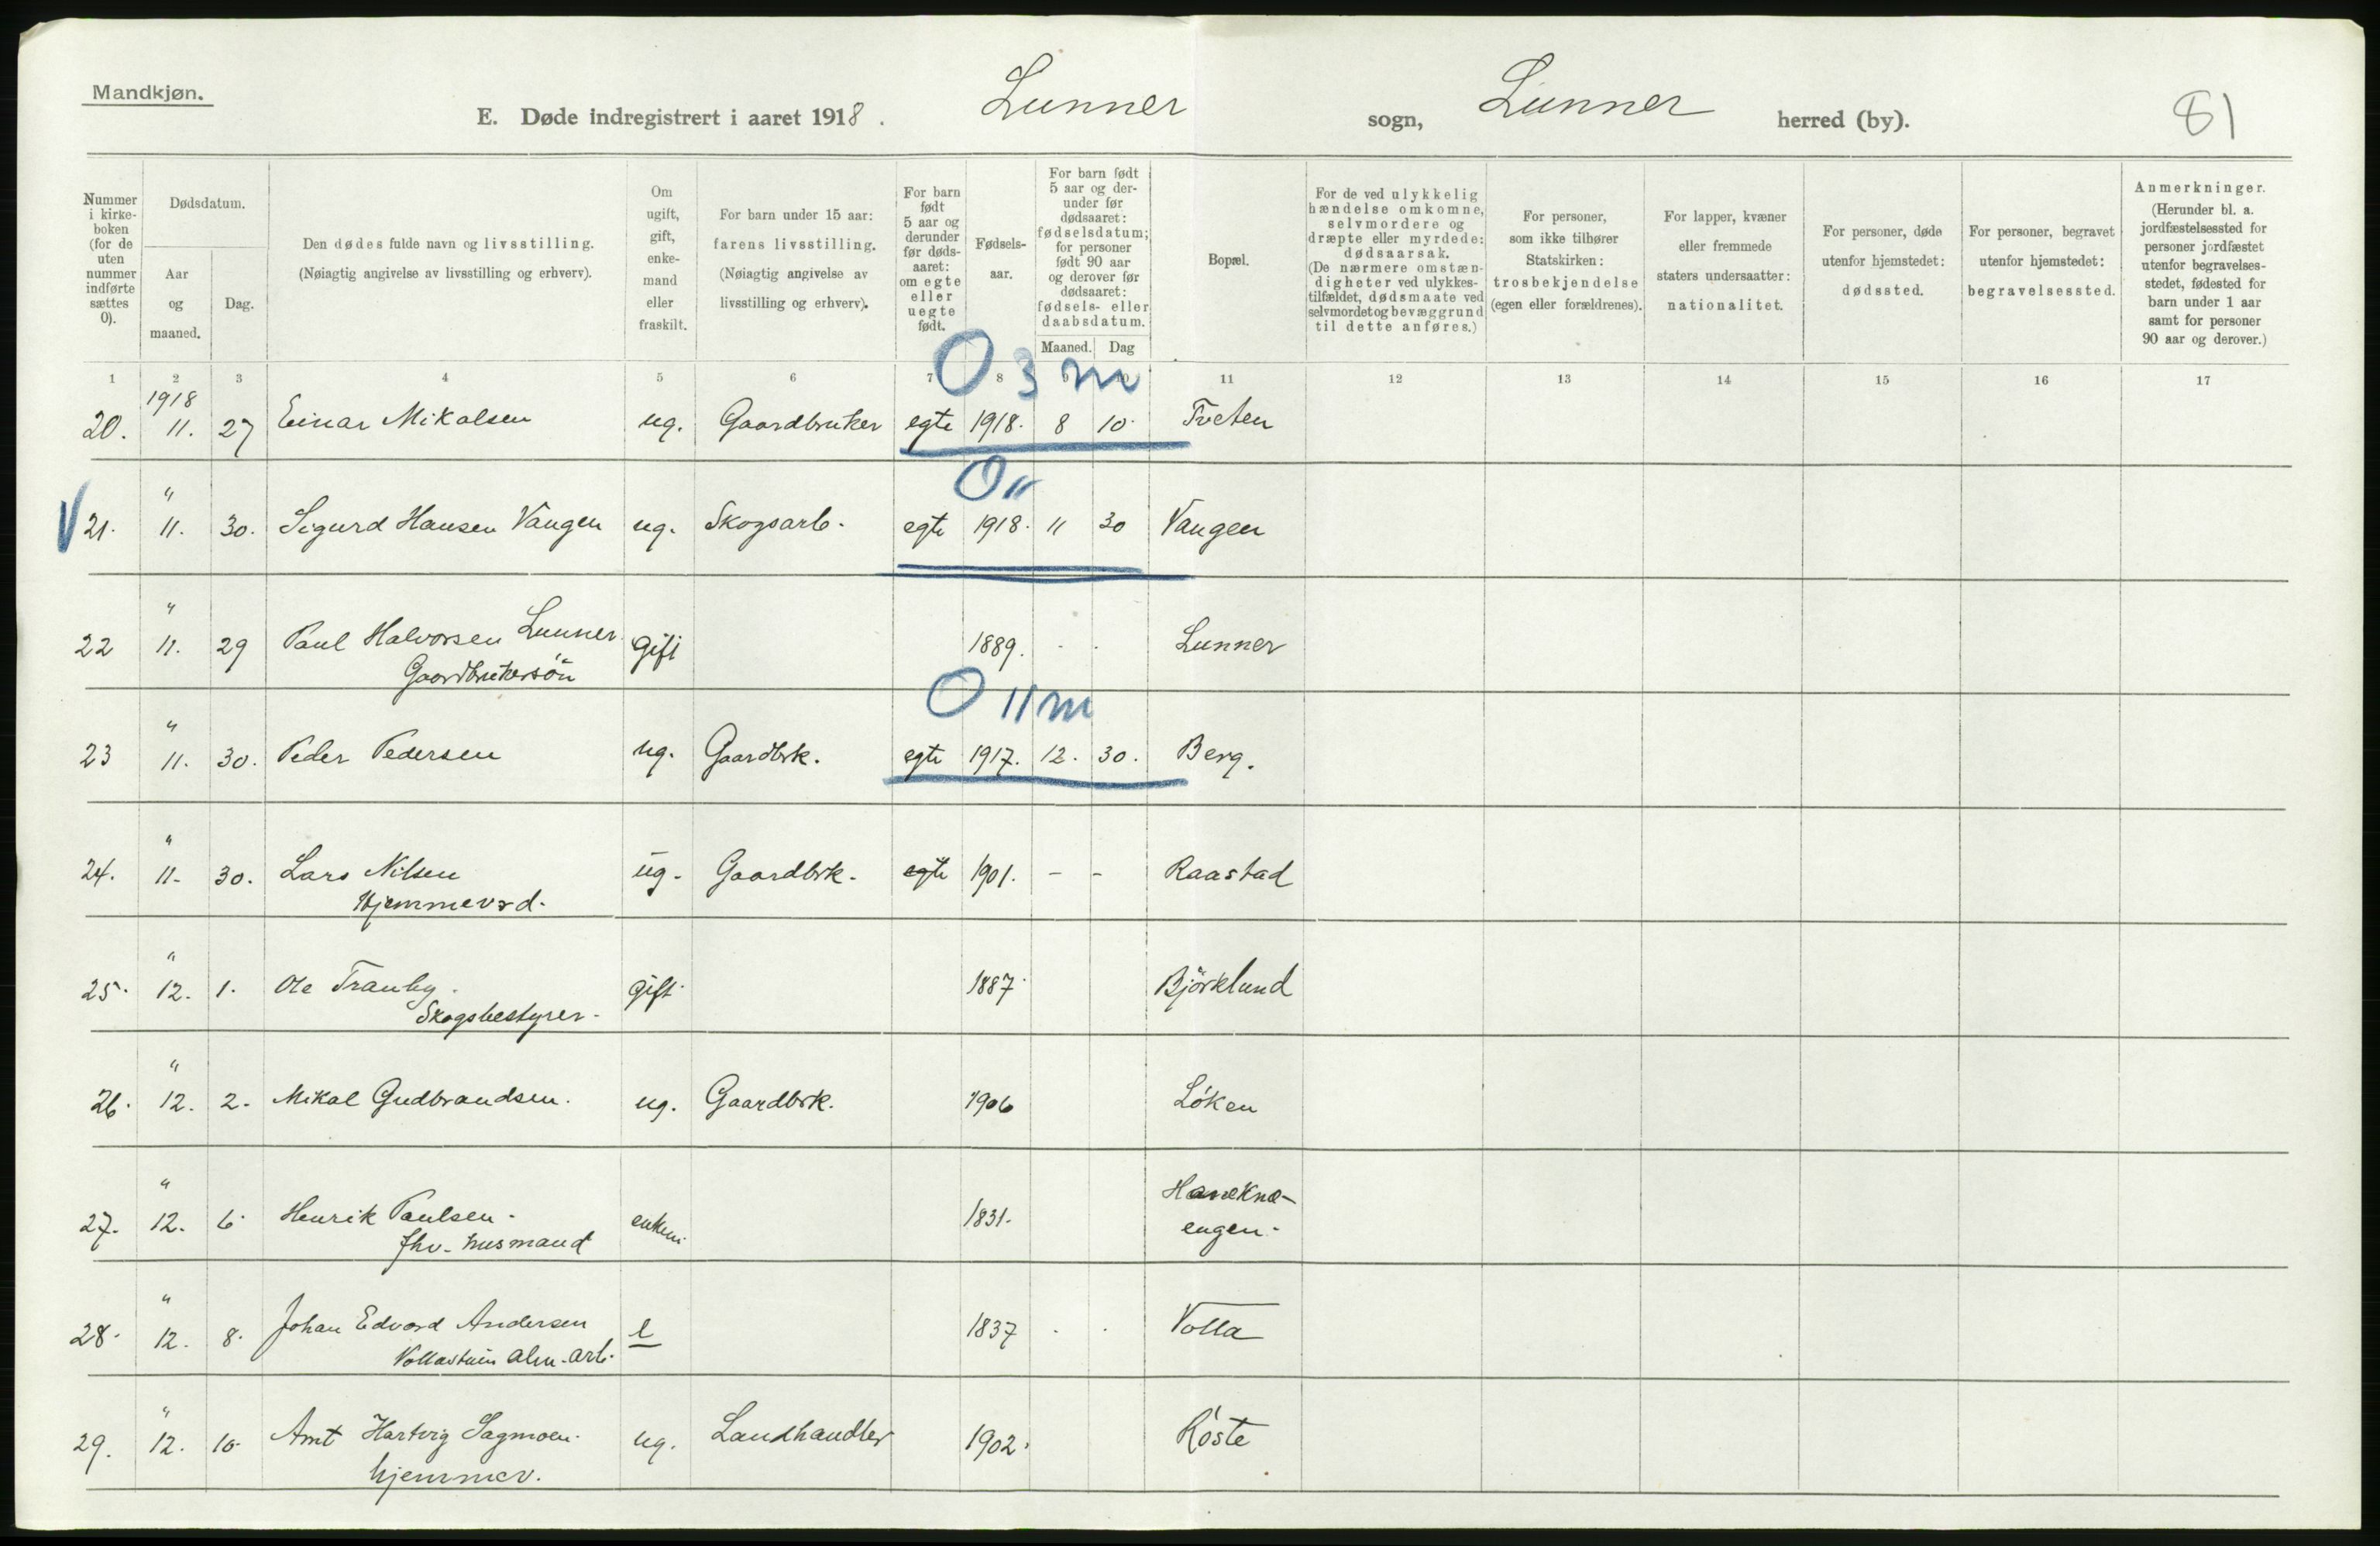 Mandkjøn.
E. Døde indregistrert i aaret 1918. Lunner sogn, Lunner herred (by). 81
Nummer i kirke-boken (for de uten nummer indførte sættes 0).
Dødsdatum.
Aar og maaned.
Dag.
Den dødes fulde navn og livsstilling.
(Nøiagtig angivelse av livsstilling og erhverv).
Om ugift, gift, enke-mand eller fraskilt.
For barn under 15 aar: farens livsstilling. (Nøiagtig angivelse av livsstilling og erhverv).
For barn født 5 aar og derunder før døds-aaret: om egte eller uegte født.
Fødsels-aar.
For barn født 5 aar og der-under før dødsaaret: fødselsdatum; for personer født 90 aar og derover før dødsaaret: fødsels- eller daabsdatum.
Maaned. Dag
Bopæl.
For de ved ulykkelig hændelse omkomne, selvmordere og dræpte eller myrdede: dødsaarsak. (De nærmere omstæn-digheter ved ulykkes-tilfældet, dødsmaate ved selvmordet og bevæggrund til dette anføres.)
For personer, som ikke tilhører Statskirken: trosbekjendelse (egen eller forældrenes).
For lapper, kvæner eller fremmede staters undersaatter: nationalitet.
For personer, døde utenfor hjemstedet: dødssted.
For personer, begravet utenfor hjemstedet: begravelsessted.
Anmerkninger. (Herunder bl. a. jordfæstelsessted for personer jordfæstet utenfor begravelses-stedet, fødested for barn under 1 aar samt for personer 90 aar og derover.)
1 2 3 4 5 6 7 8 9 10 11 12 13 14 15 16 17
0 3 m
1918
20. 11. 27 Einar Mikalsen ug. Gaardbruker egte 1918. 8 10. Tveten
0 "
"
V 21. 11. 30. Sigurd Hansen Vangen ug. Skogsarb. egte 1918. 11 30 Vangen
"
22 11. 29 Paul Halvorsen Lunner gift 1889. Lunner
Gaardbrukersön
0 11 m
"
23 11. 30. Peder Pedersen ug. Gaardbrk. egte 1917. 12. 30. Berg.
"
24. 11. 30. Lars Nilsen ug. Gaardbrk. egte 1901. - - Raastad
Hjemmevrd.
"
25. 12. 1. Ole Tranby. gift 1887. Björklund
Skogsbestyrer.
"
26. 12. 2. Mikal Gudbrandsen. ug. Gaardbrk. 1906 Löken
"
27. 12. 6. Henrik Paulsen. enkem. 1831. Haneknæ-
fhv. husmand engen.
"
28. 12. 8. Johan Edvard Andersen e 1837 Volla
alm. arb.
"
29. 12. 10. Arnt Hartvig Sagmoen. ug. Landhandler 1902. Röste
hjemmev.